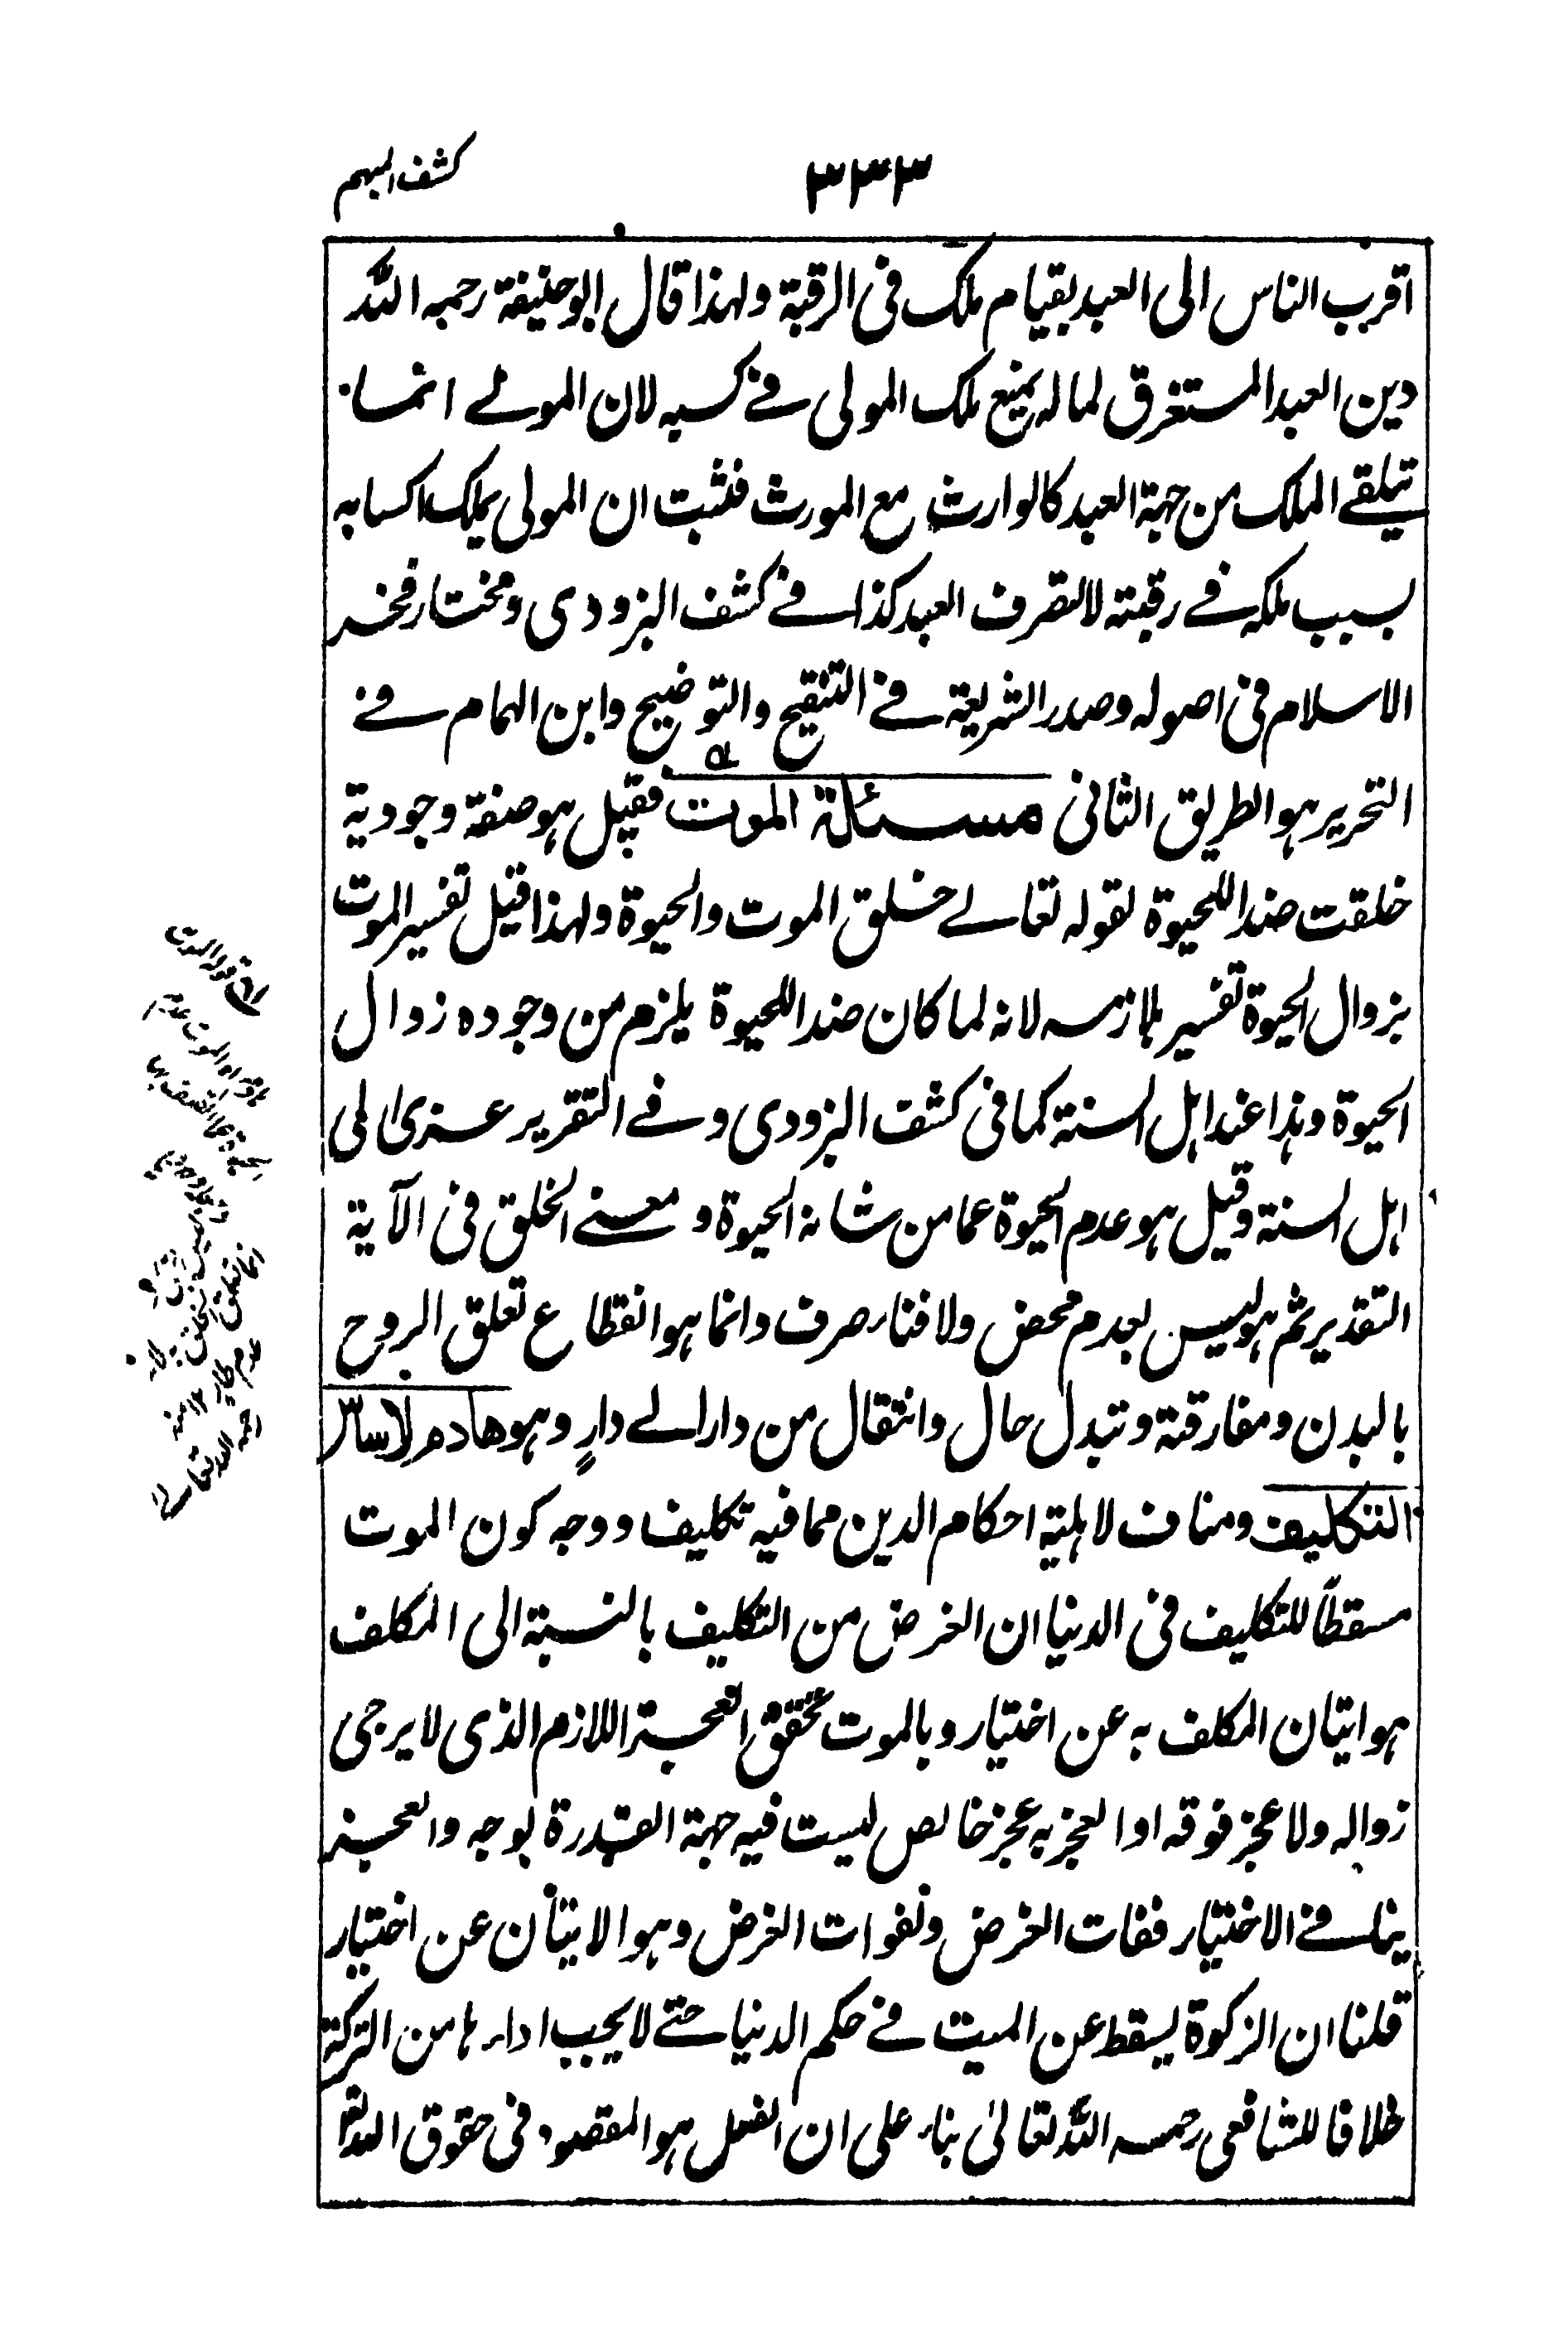 ٣٣٣
كشف المبهم
اقرب الناس الى العبد بقيام ملك فى الرقبة ولهذا قال ابو حنيفة رحمه الله
دين العبد المستغرق لما له يمنع ملك المولى فى كسبه لان المولى انما
يتلقى الملك من جهة العبد كالوارث مع المورث فثبت ان المولى يملك اكسابه
بسبب ملكه فى رقبته لا لتصرف العبد كذا فى كشف البزودى ومختار فخر
الاسلام فى اصوله وصدر الشريعة فى التنقيح والتوضيح وابن الهمام فى
التحرير هو الطريق الثانى مسئلة الموت فقيل هو صفة وجودية
خلقت ضدا للحيوة لقوله تعالى خلق الموت والحيوة ولهذا قيل تفسير الموت
بزوال الحيوة تفسير بلازمه لانه لما كان ضدا للحيوة يلزم من وجوده زوال
الحيوة وهذا عند اهل السنة كما فى كشف البزودى وفى التقرير عزى الى
اهل السنة وقيل هو عدم الحيوة عما من شانه الحيوة ومعنى الخلق فى الآية
التقدير ثم هو ليس بعدم محض ولا فناء صرف وانما هو انقطاع تعلق الروح
بالبدن ومفارقته وتبدل حال وانتقال من دار الى دارٍ وهو هادم لاساس
التكليف ومناف لاهلية احكام الدين مما فيه تكليف ووجه كون الموت
مسقطاً للتكليف فى الدنيا ان الغرض من التكليف بالنسبة الى المكلف
هو اتيان المكلف به عن اختيار وبالموت تحقق العجز اللازم الذى لا يرجى
زواله ولا عجز فوقه اذ العجز به عجز خالص ليست فيه جهة القدرة بوجه والعجز
ينافى الاختيار ففات الغرض ولفوات الغرض وهو الاتيان عن اختيار
قلنا ان الزكوة يسقط عن الميت فى حكم الدنيا حتى لا يجب اداءها من التركة
خلافا للشافعى رحمه الله تعالىٰ بناء على ان الفعل هو المقصود فى حقوق الله تعا
قوله الموت
رحمه الله تعالى